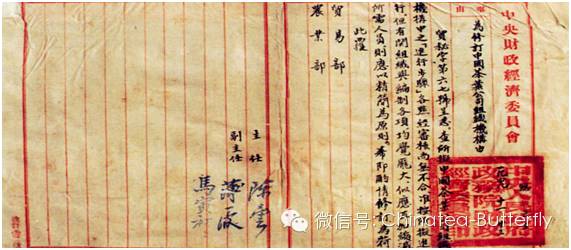 中央財政經濟委員會
事由
為修訂中國茶葉公司組織機構由
貿秘字第六七號呈悉。查所擬中國茶葉
機構中之「進行步驟」各點經審核尚無不合准
行但有關組織與編制各項，均覺龐大，似應
所需人員則應以精簡為原則。希即酌情修訂為荷
此覆
貿易部
農業部
主任 陳雲
副主任 薄一波
馬寅初
微信号: Chinatea-Butterfly